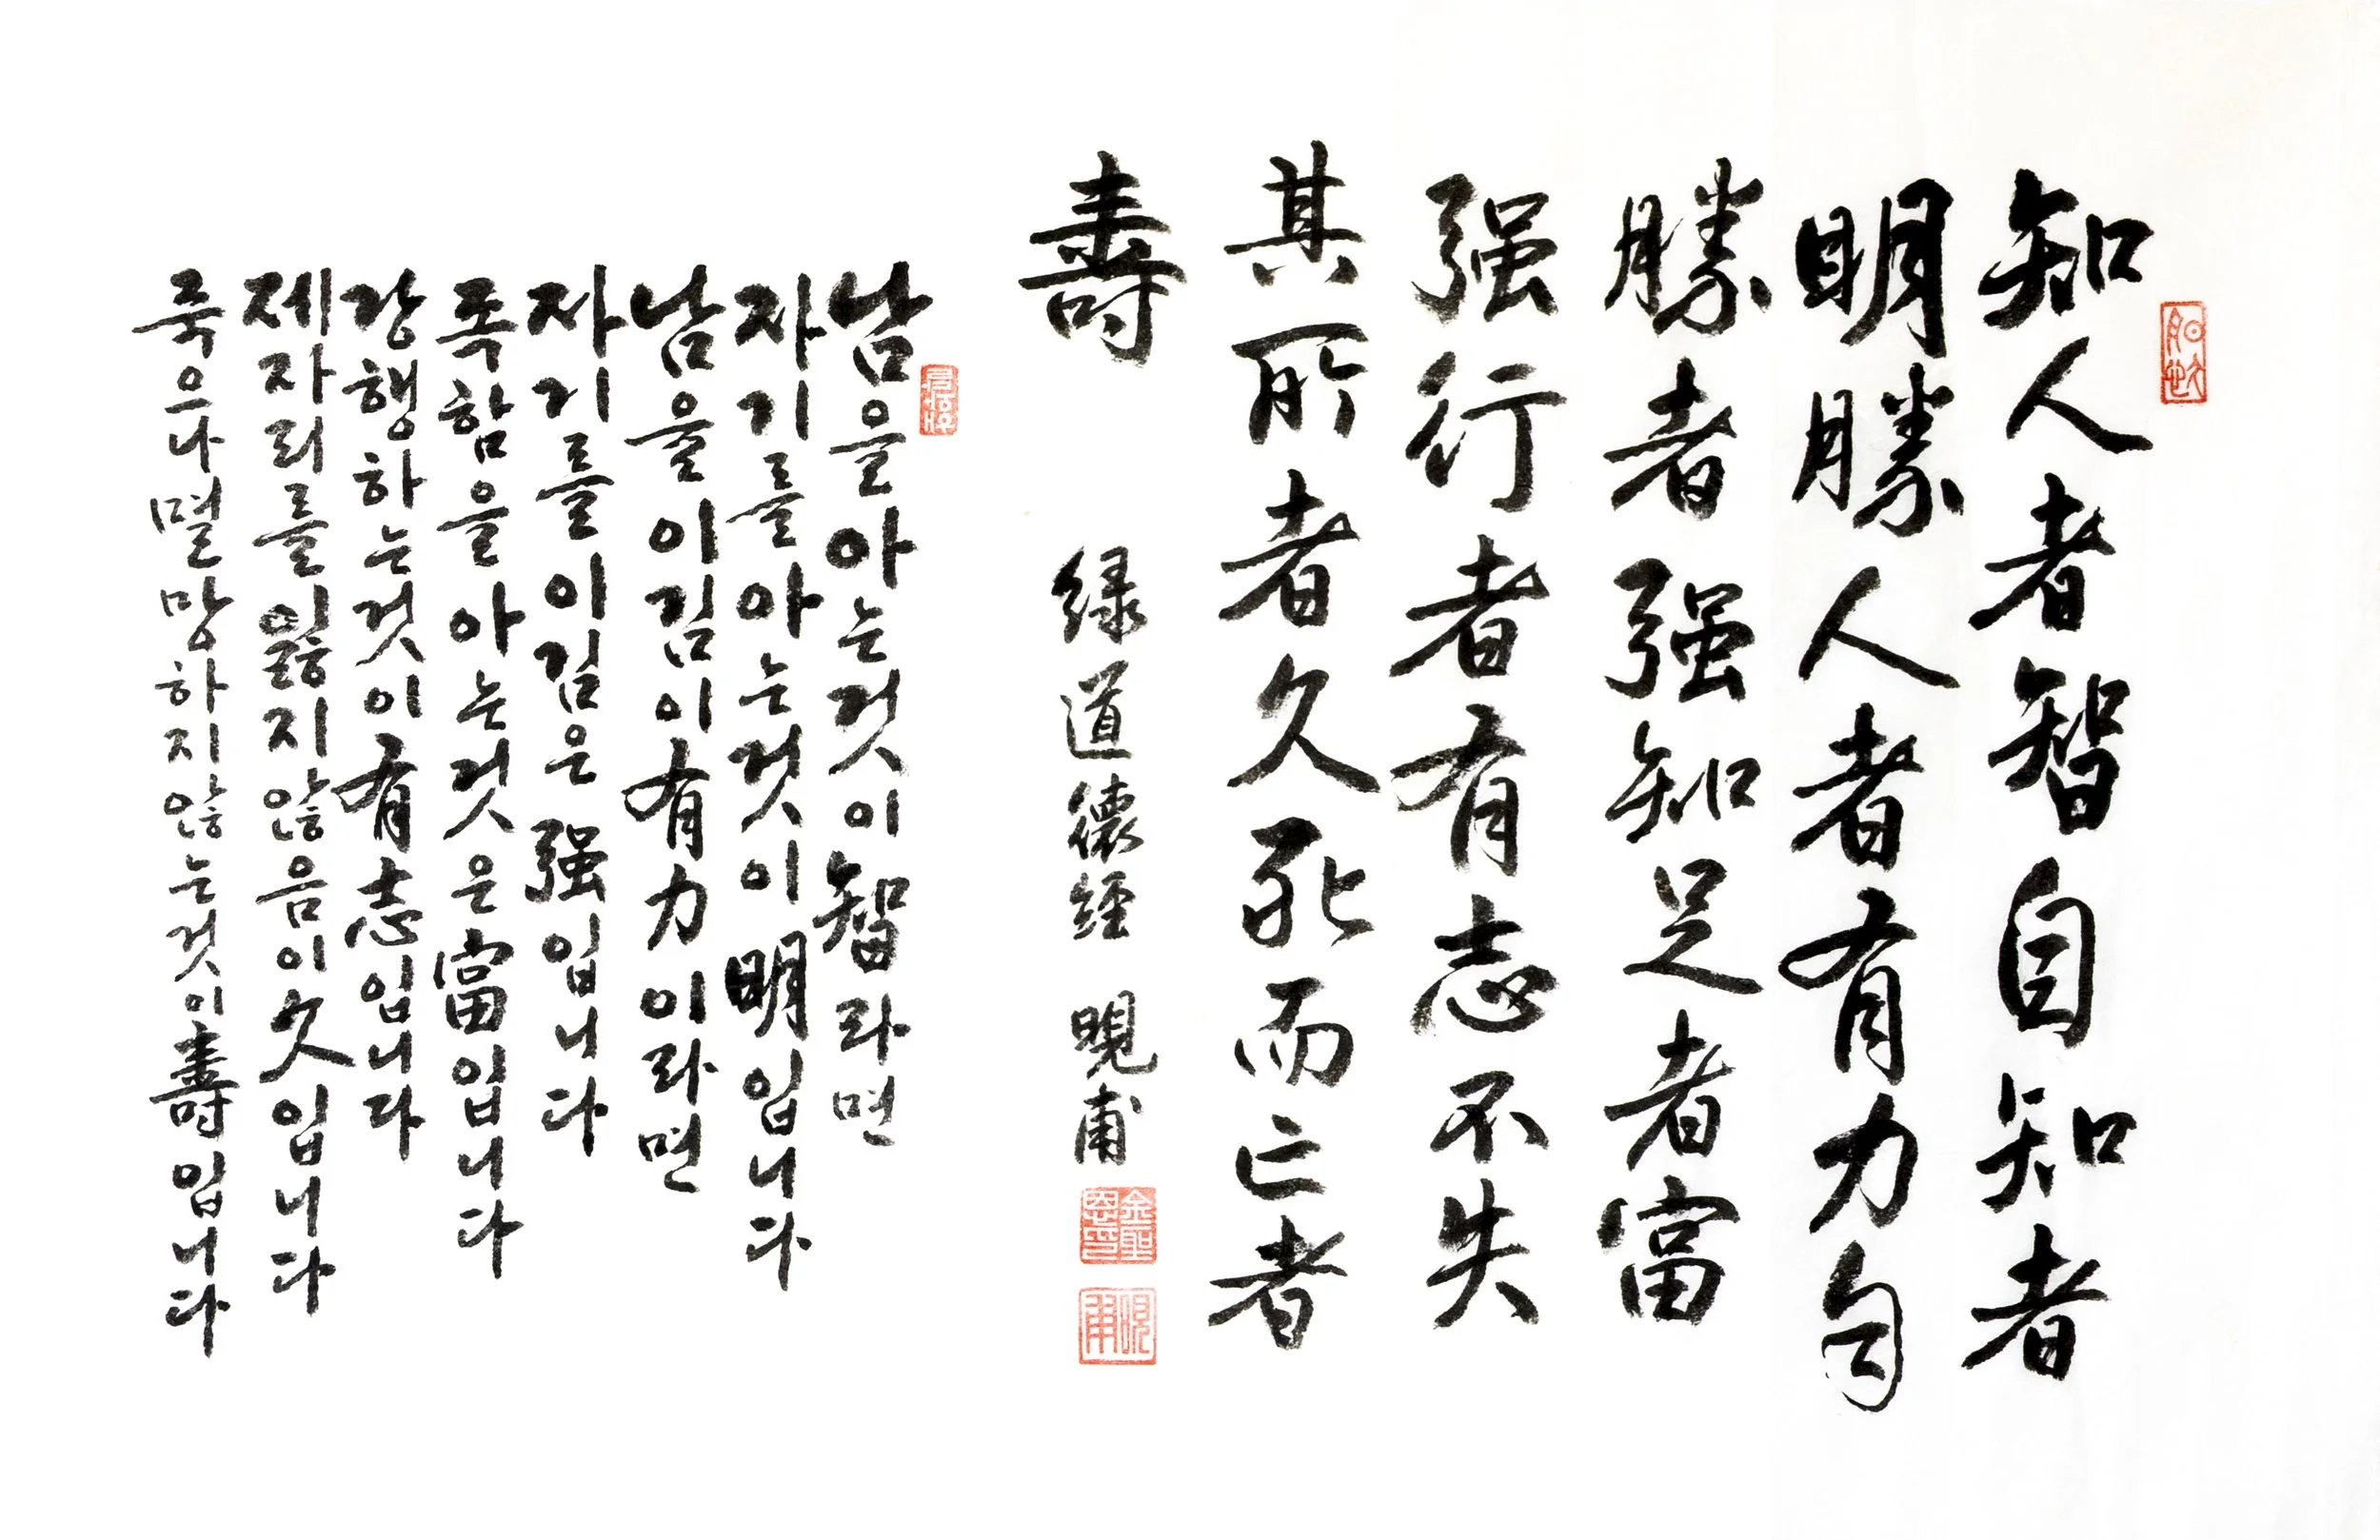 知人者智自知者
明勝人者有力自
勝者强知足者富
强行者有志不失
其所者久死而亡者
壽 緑道德經 晛甫
晛甫
남을아는것이智라면
자기를아는것이明입니다
남을이김이有力이라면
자기를이김은强입니다
족함을아는것은富입니다
강행하는것이有志입니다
제자리를잃지않음이久입니다
죽으나멸망하지않는것이壽입니다